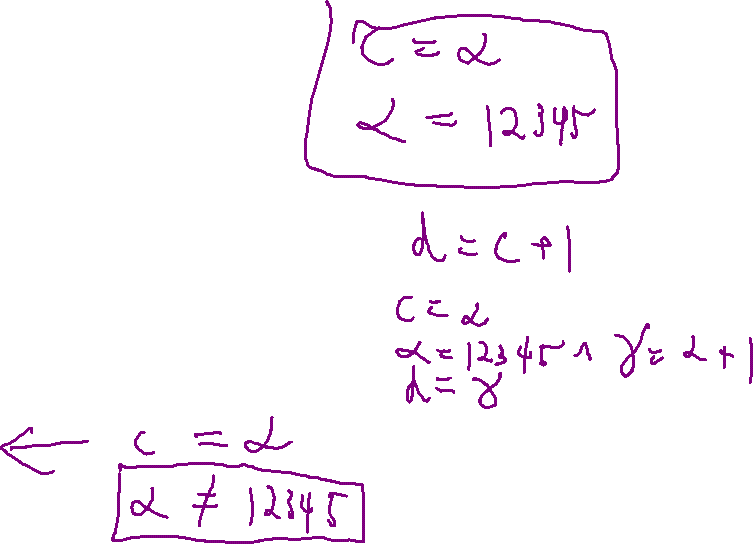 c = α
α = 12345
d = c + 1
c = α
α = 12345 ∧ γ = α + 1
d = γ
← c = α
α ≠ 12345